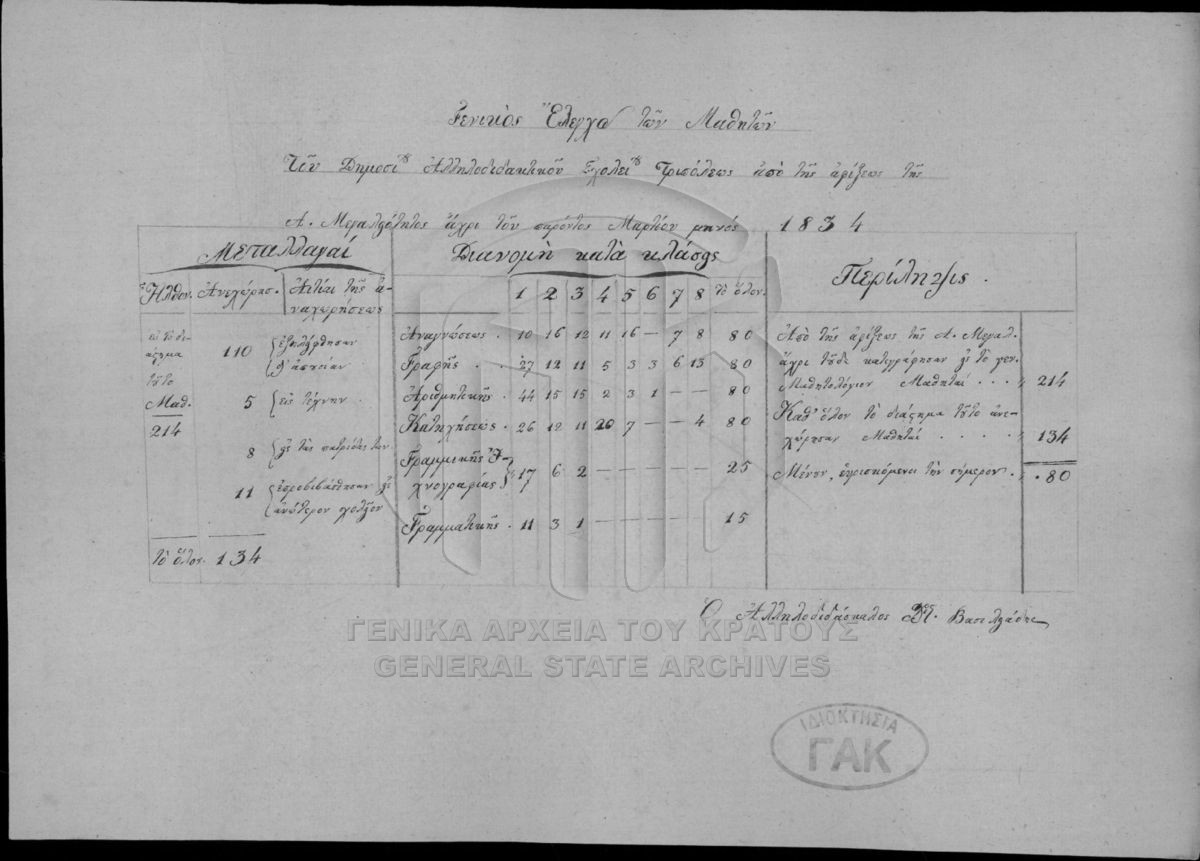 Γενικὸς Ἔλεγχος τῶν Μαθητῶν
Τοῦ Δημοσίου Ἀλληλοδιδακτικοῦ Σχολείου Τριπόλεως ἀπὸ τῆς ἀφίξεως τῆς
Α. Μεγαλειότητος ἄχρι τοῦ παρόντος Μαρτίου μηνός 1834
Μεταλλαγαί
Ἦλθον. Ἀνεχώρησ. Αἰτίαι τῆς ἀ-
ναχωρήσεως
εἰς τὸ δι-
άςημα
τοῦτο
Μαθ.
214
110 ἐξηλείφθησαν
δι' ἀπουσίαν
5 εἰς τέχνην
8 εἰς τὰς πατρίδας των
11 ἐπροβιβάσθησαν εἰς
ἀνώτερον σχολεῖον
τὸ ὅλον. 134
Διανομὴ κατὰ κλάσεις
1 2 3 4 5 6 7 8 τὸ ὅλον.
Ἀναγνώσεως . 10 16 12 11 16 — 7 8 80
Γραφῆς . . 27 12 11 5 3 3 6 13 80
Ἀριθμητικῆς . 44 15 15 2 3 1 — — 80
Κατηχήσεως . 26 12 11 20 7 — — 4 80
Γραμμικῆς Ἰ-
χνογραφίας 17 6 2 — — — — — 25
Γραμματικῆς . 11 3 1 — — — — — 15
Περίληψις.
Ἀπὸ τῆς ἀφίξεως τῆς Α. Μεγαλ.
ἄχρι τοῦδε κατεγράφησαν εἰς τὸ γεν.
Μαθητολόγιον Μαθηταί . . . 214
Καθ' ὅλον τὸ διάςημα τοῦτο ἀνε-
χώρησαν Μαθηταί . . . . 134
Μένουν, εὑρισκόμενοι τὴν σήμερον . 80
Ὁ Ἀλληλοδιδάσκαλος Βασιλειάδης
ΓΕΝΙΚΑ ΑΡΧΕΙΑ ΤΟΥ ΚΡΑΤΟΥΣ
GENERAL STATE ARCHIVES
ΙΔΙΟΚΤΗΣΙΑ
ΓΑΚ